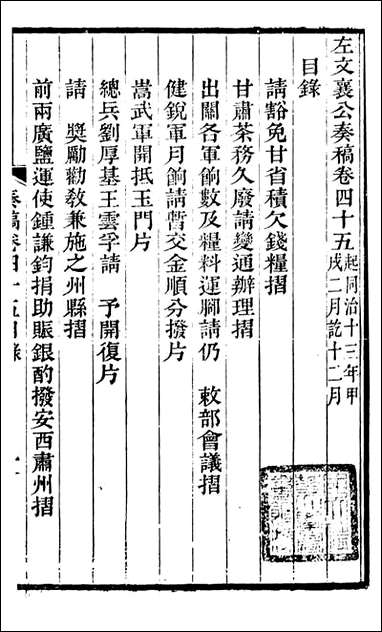 左文襄公奏稿卷四十五起同治十三年甲戌二月訖十二月
目錄
請豁免甘省積欠錢糧摺
甘肅茶務久廢請變通辦理摺
出關各軍餉數及糧料運腳請仍 敕部會議摺
健銳軍月餉請暫交金順分撥片
嵩武軍開抵玉門片
總兵劉厚基王雲孚請 予開復片
請 獎勵勸敎兼施之州縣摺
前兩廣鹽運使鍾謙鈞捐助賑銀酌撥安西肅州摺
奏稿卷四十五目錄 一